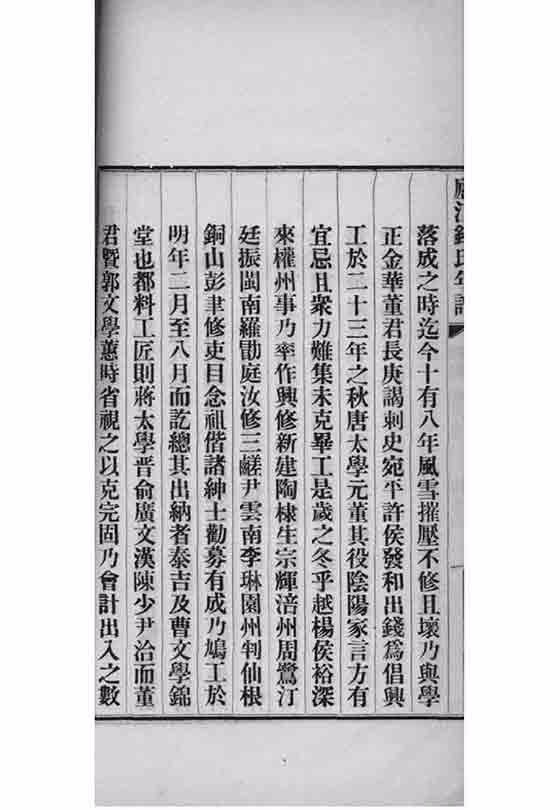 廬江錢氏年譜
落成之時迄今十有八年風雪摧壓不修且壞乃與學
正金華董君長庚謁刺史宛平許侯發和出錢爲倡興
工於二十三年之秋唐太學元董其役陰陽家言方有
宜忌且衆力難集未克畢工是歲之冬平越楊侯裕深
來權州事乃率作興修新建陶棣生宗輝涪州周鷺汀
廷振閩南羅勖庭汝修三鹺尹雲南李琳園州判仙根
銅山彭聿修吏目念祖偕諸紳士勸募有成乃鳩工於
明年二月至八月而訖總其出納者泰吉及曹文學錦
堂也都料工匠則蔣太學晋俞廣文漢陳少尹治而董
君暨郭文學蕙時省視之以克完固乃會計出入之數